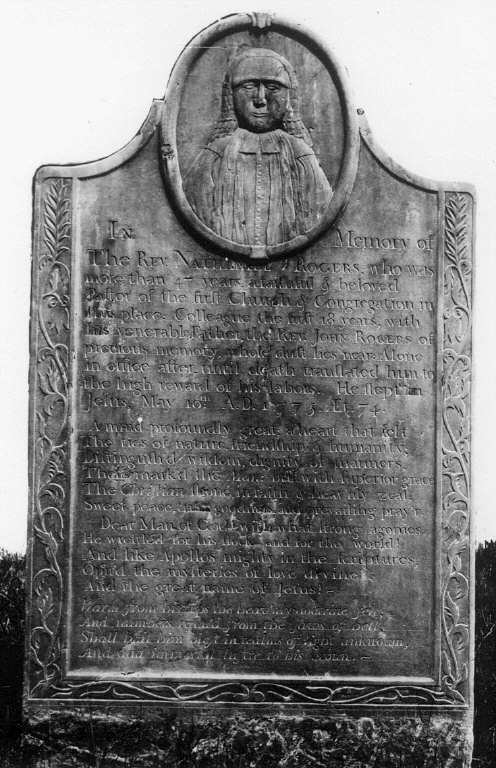 In Memory of
The Rev. Nathaniel Rogers, who was
more than 47 years, a faithful & beloved
Pastor of the first Church & Congregation in
this place. Colleague the first 18 years, with
his venerable Father, the Rev. John Rogers of
precious memory, whose dust lies near. Alone
in office after, until death translated him to
the high reward of his labors. He slept in
Jesus, May 10th A.D. 1775. Æt. 74.
A mind profoundly great, a heart that felt
The ties of nature, friendship & humanity,
Distinguish'd wisdom, dignity of manners;
Those mark'd the Man: but with superior grace
The Christian shone in faith & heav'nly zeal,
Sweet peace, true goodness, and prevailing pray'r
Dear Man of God! with what strong agonies
He wrestled for his flock and for the world!
And like Apollos mighty in the scriptures,
Op'd the mysteries of love divine
And the great name of Jesus!
Warm from his lips the heav'nly doctrine fell,
And numbers rescu'd from the jaws of hell,
Shall hail him blest in realms of light unknown,
And add immortal to his crown.